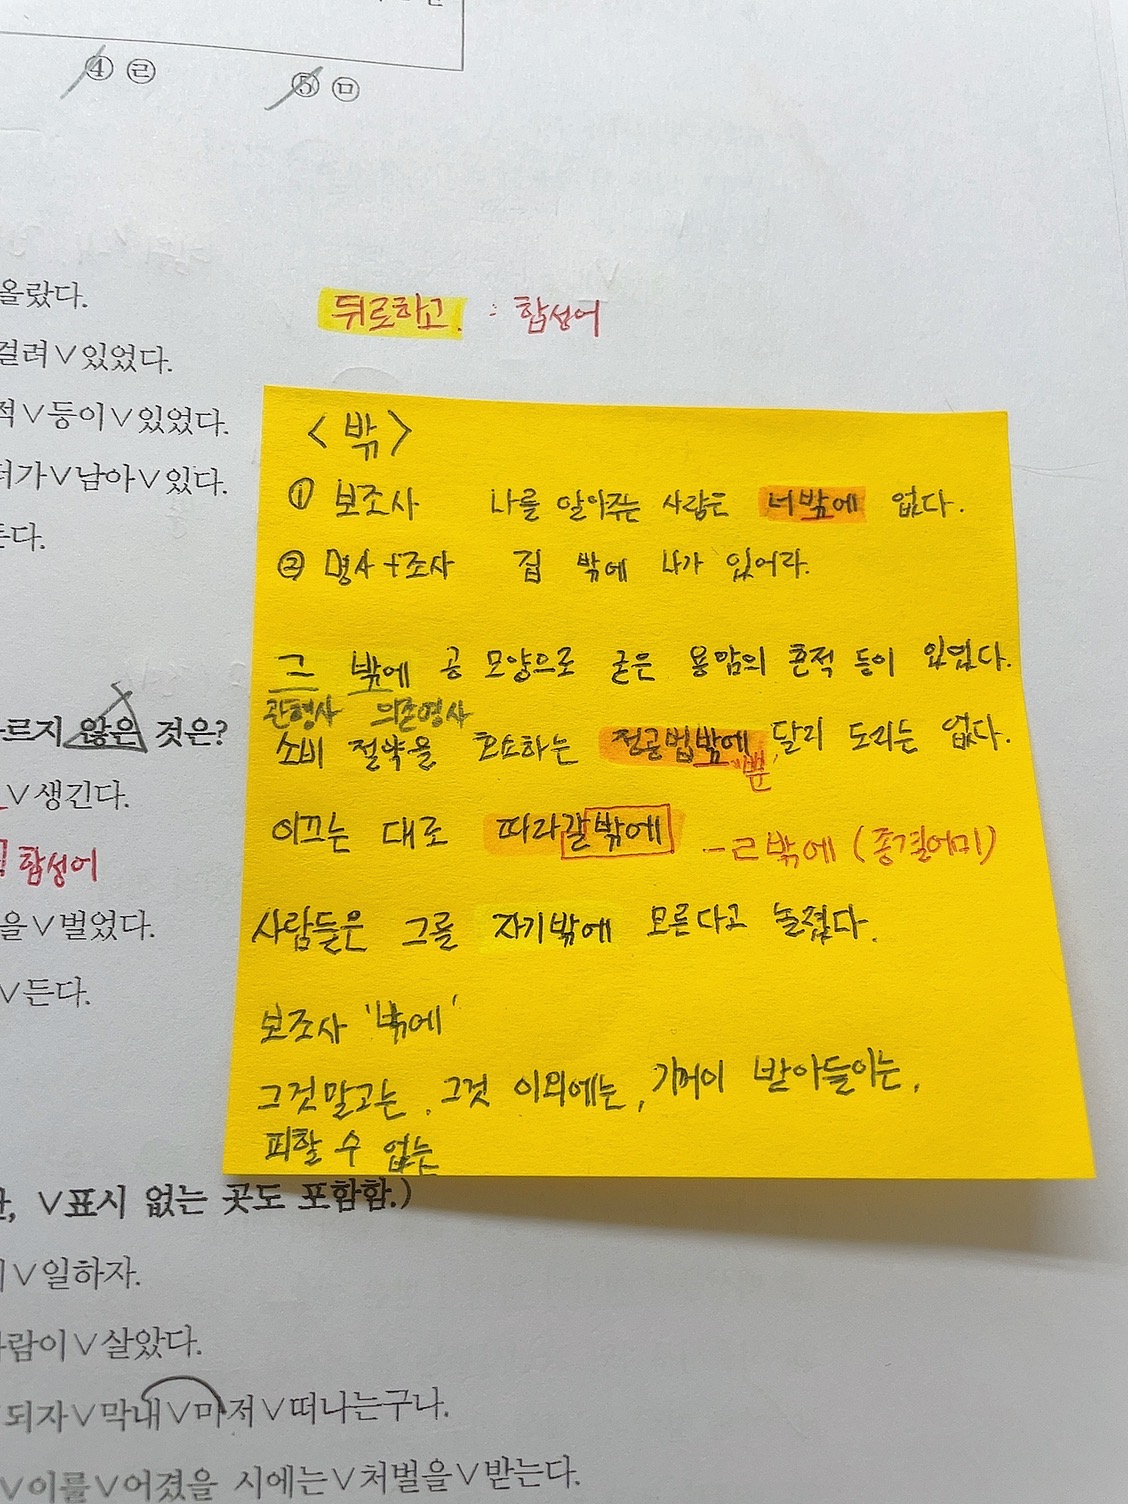 ④ ㉣ ⑤ ㉤
올랐다.
뒤로하고 : 합성어
걸려∨있었다.
적∨등이∨있었다.
터가∨남아∨있다.
든다.
<밖>
① 보조사 나를 알아주는 사람은 너밖에 없다.
② 명사+조사 집 밖에 나가 있어라.
그 밖에 공 모양으로 굳은 용암의 흔적 등이 있었다.
관형사 의존명사
소비 절약을 호소하는 정공법밖에 달리 도리는 없다.
'뿐'
이끄는 대로 따라갈밖에 -ㄹ밖에 (종결어미)
사람들은 그를 자기밖에 모른다고 놀렸다.
보조사 '밖에'
그것말고는, 그것 이외에는, 기꺼이 받아들이는,
피할 수 없는
르지 않은 것은?
∨생긴다.
합성어
을∨벌었다.
∨든다.
∨표시 없는 곳도 포함함.)
∨일하자.
람이∨살았다.
되자∨막내∨마저∨떠나는구나.
∨이를∨어겼을 시에는∨처벌을∨받는다.